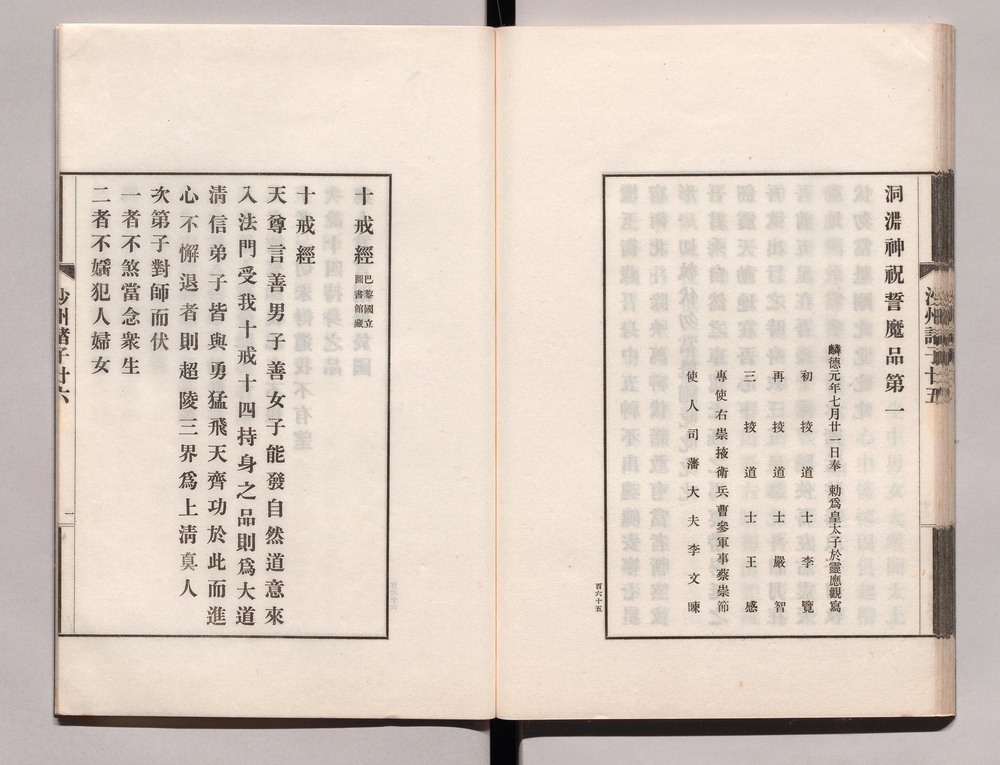 洞淵神祝誓魔品第一
麟德元年七月廿一日奉 勅爲皇太子於靈應觀寫
初挍道士李覽
再挍道士嚴智
三挍道士王感
專使右崇掖衛兵曹參軍事蔡崇節
使人司藩大夫李文暕
百六十五
沙州諸子廿五
十戒經 巴黎國立圖書館藏
十戒經
天尊言善男子善女子能發自然道意來
入法門受我十戒十四持身之品則爲大道
清信弟子皆與勇猛飛天齊功於此而進
心不懈退者則超陵三界爲上清真人
次第子對師而伏
一者不煞當念衆生
二者不婬犯人婦女
沙州諸子廿六
一